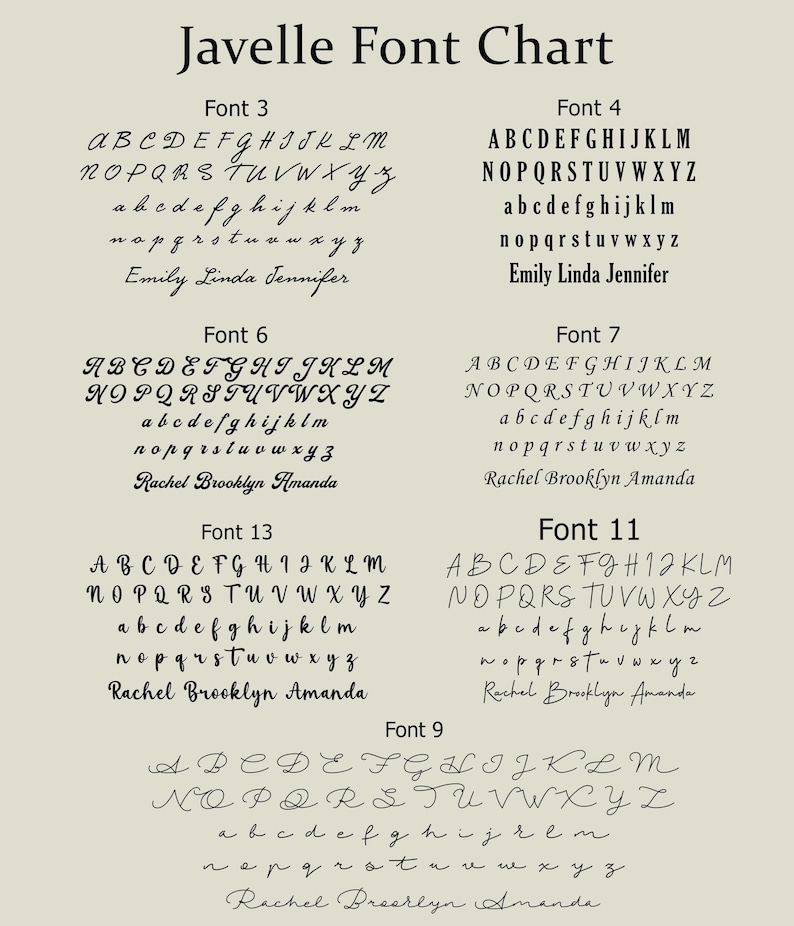 Javelle Font Chart
Font 3
A B C D E F G H I J K L M
N O P Q R S T U V W X Y Z
a b c d e f g h i j k l m
n o p q r s t u v w x y z
Emily Linda Jennifer
Font 4
A B C D E F G H I J K L M
N O P Q R S T U V W X Y Z
a b c d e f g h i j k l m
n o p q r s t u v w x y z
Emily Linda Jennifer
Font 6
A B C D E F G H I J K L M
N O P Q R S T U V W X Y Z
a b c d e f g h i j k l m
n o p q r s t u v w x y z
Rachel Brooklyn Amanda
Font 7
A B C D E F G H I J K L M
N O P Q R S T U V W X Y Z
a b c d e f g h i j k l m
n o p q r s t u v w x y z
Rachel Brooklyn Amanda
Font 13
A B C D E F G H I J K L M
N O P Q R S T U V W X Y Z
a b c d e f g h i j k l m
n o p q r s t u v w x y z
Rachel Brooklyn Amanda
Font 11
A B C D E F G H I J K L M
N O P Q R S T U V W X Y Z
a b c d e f g h i j k l m
n o p q r s t u v w x y z
Rachel Brooklyn Amanda
Font 9
A B C D E F G H I J K L M
N O P Q R S T U V W X Y Z
a b c d e f g h i j k l m
n o p q r s t u v w x y z
Rachel Brooklyn Amanda